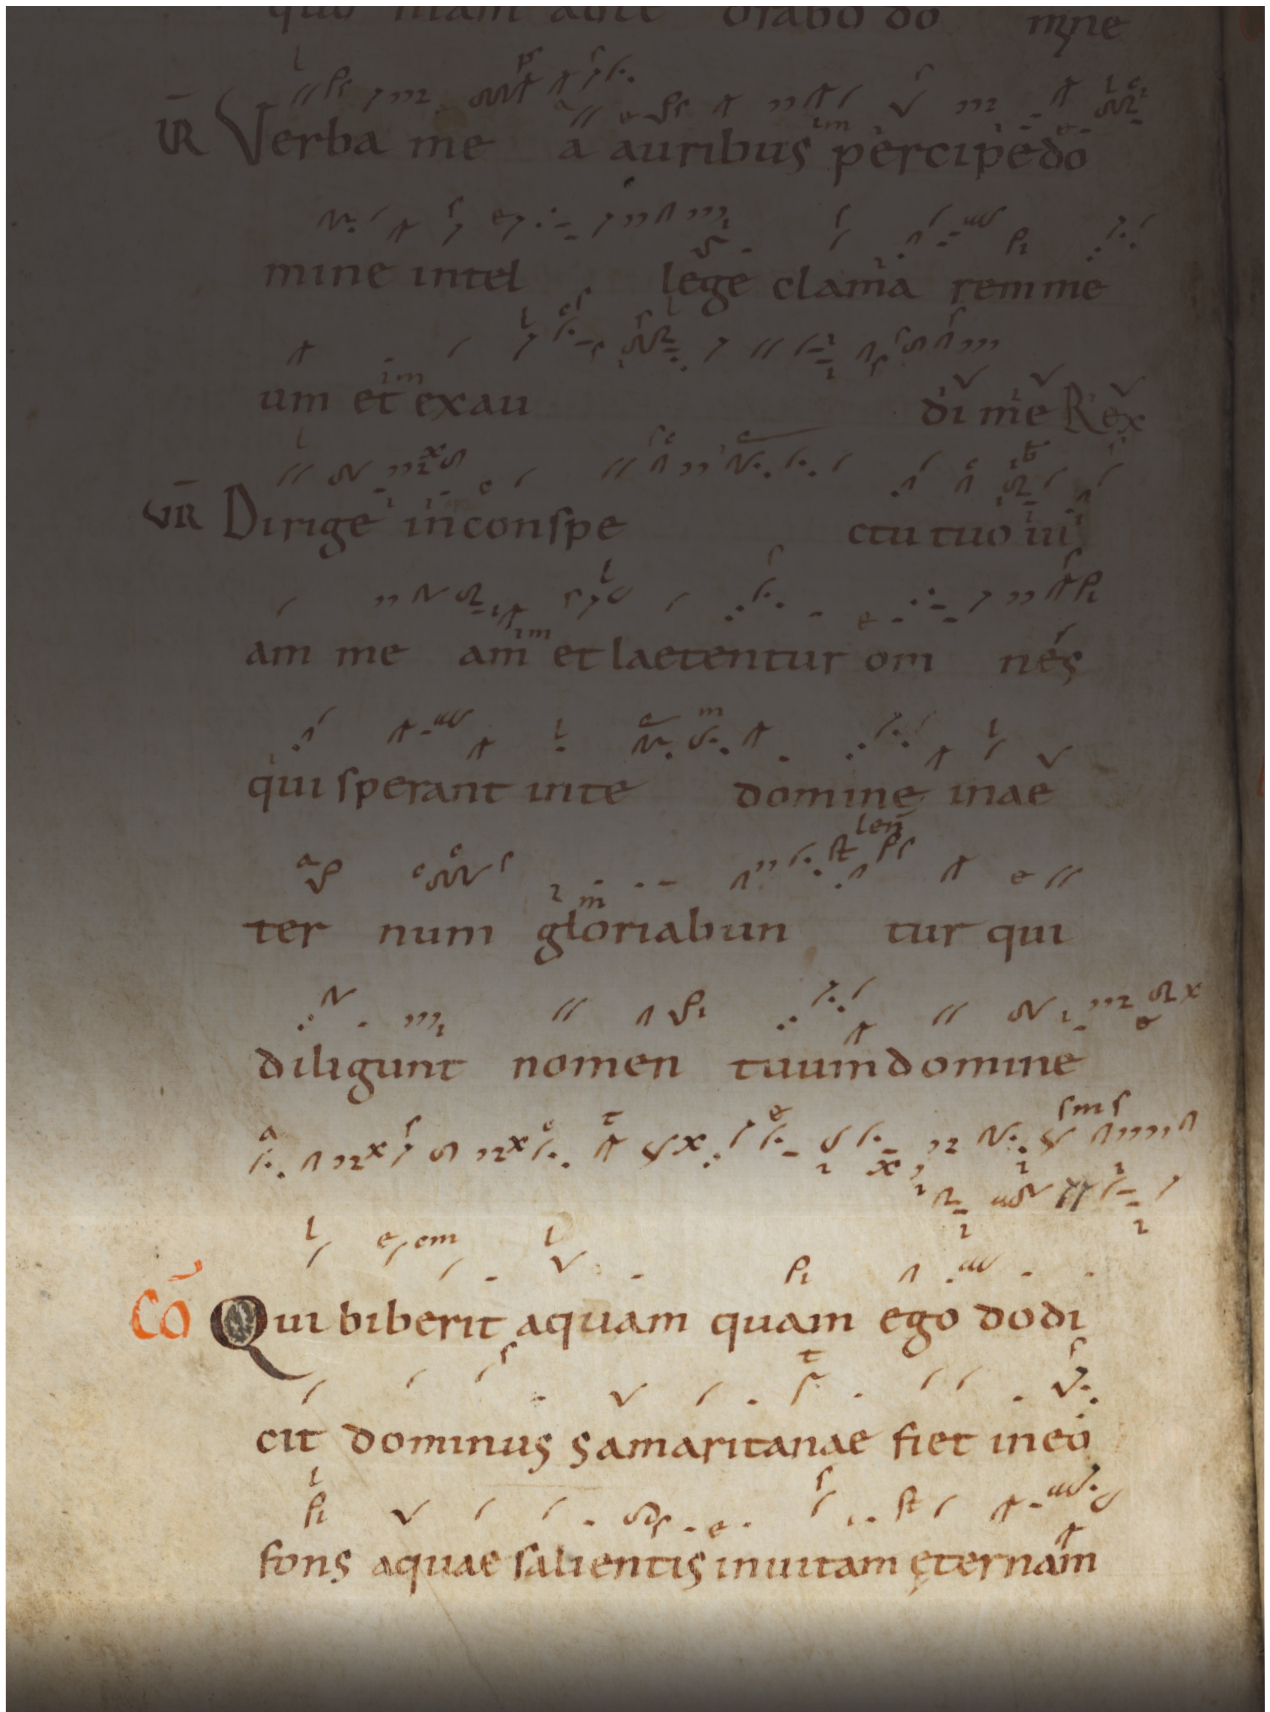 quo niam adte orabo do mine
VR Verba me a auribus percipe do
mine intel lege clama remme
um et exau di me Rex
VR Dirige in conspe ctu tuo ui
am me am et laetentur om nes
qui sperant inte domine inae
ter num gloriabun tur qui
diligunt nomen tuum domine
Cō Qui biberit aquam quam ego do di
cit dominus samaritanae fiet in eo
fons aquae salientis in uitam ęternam